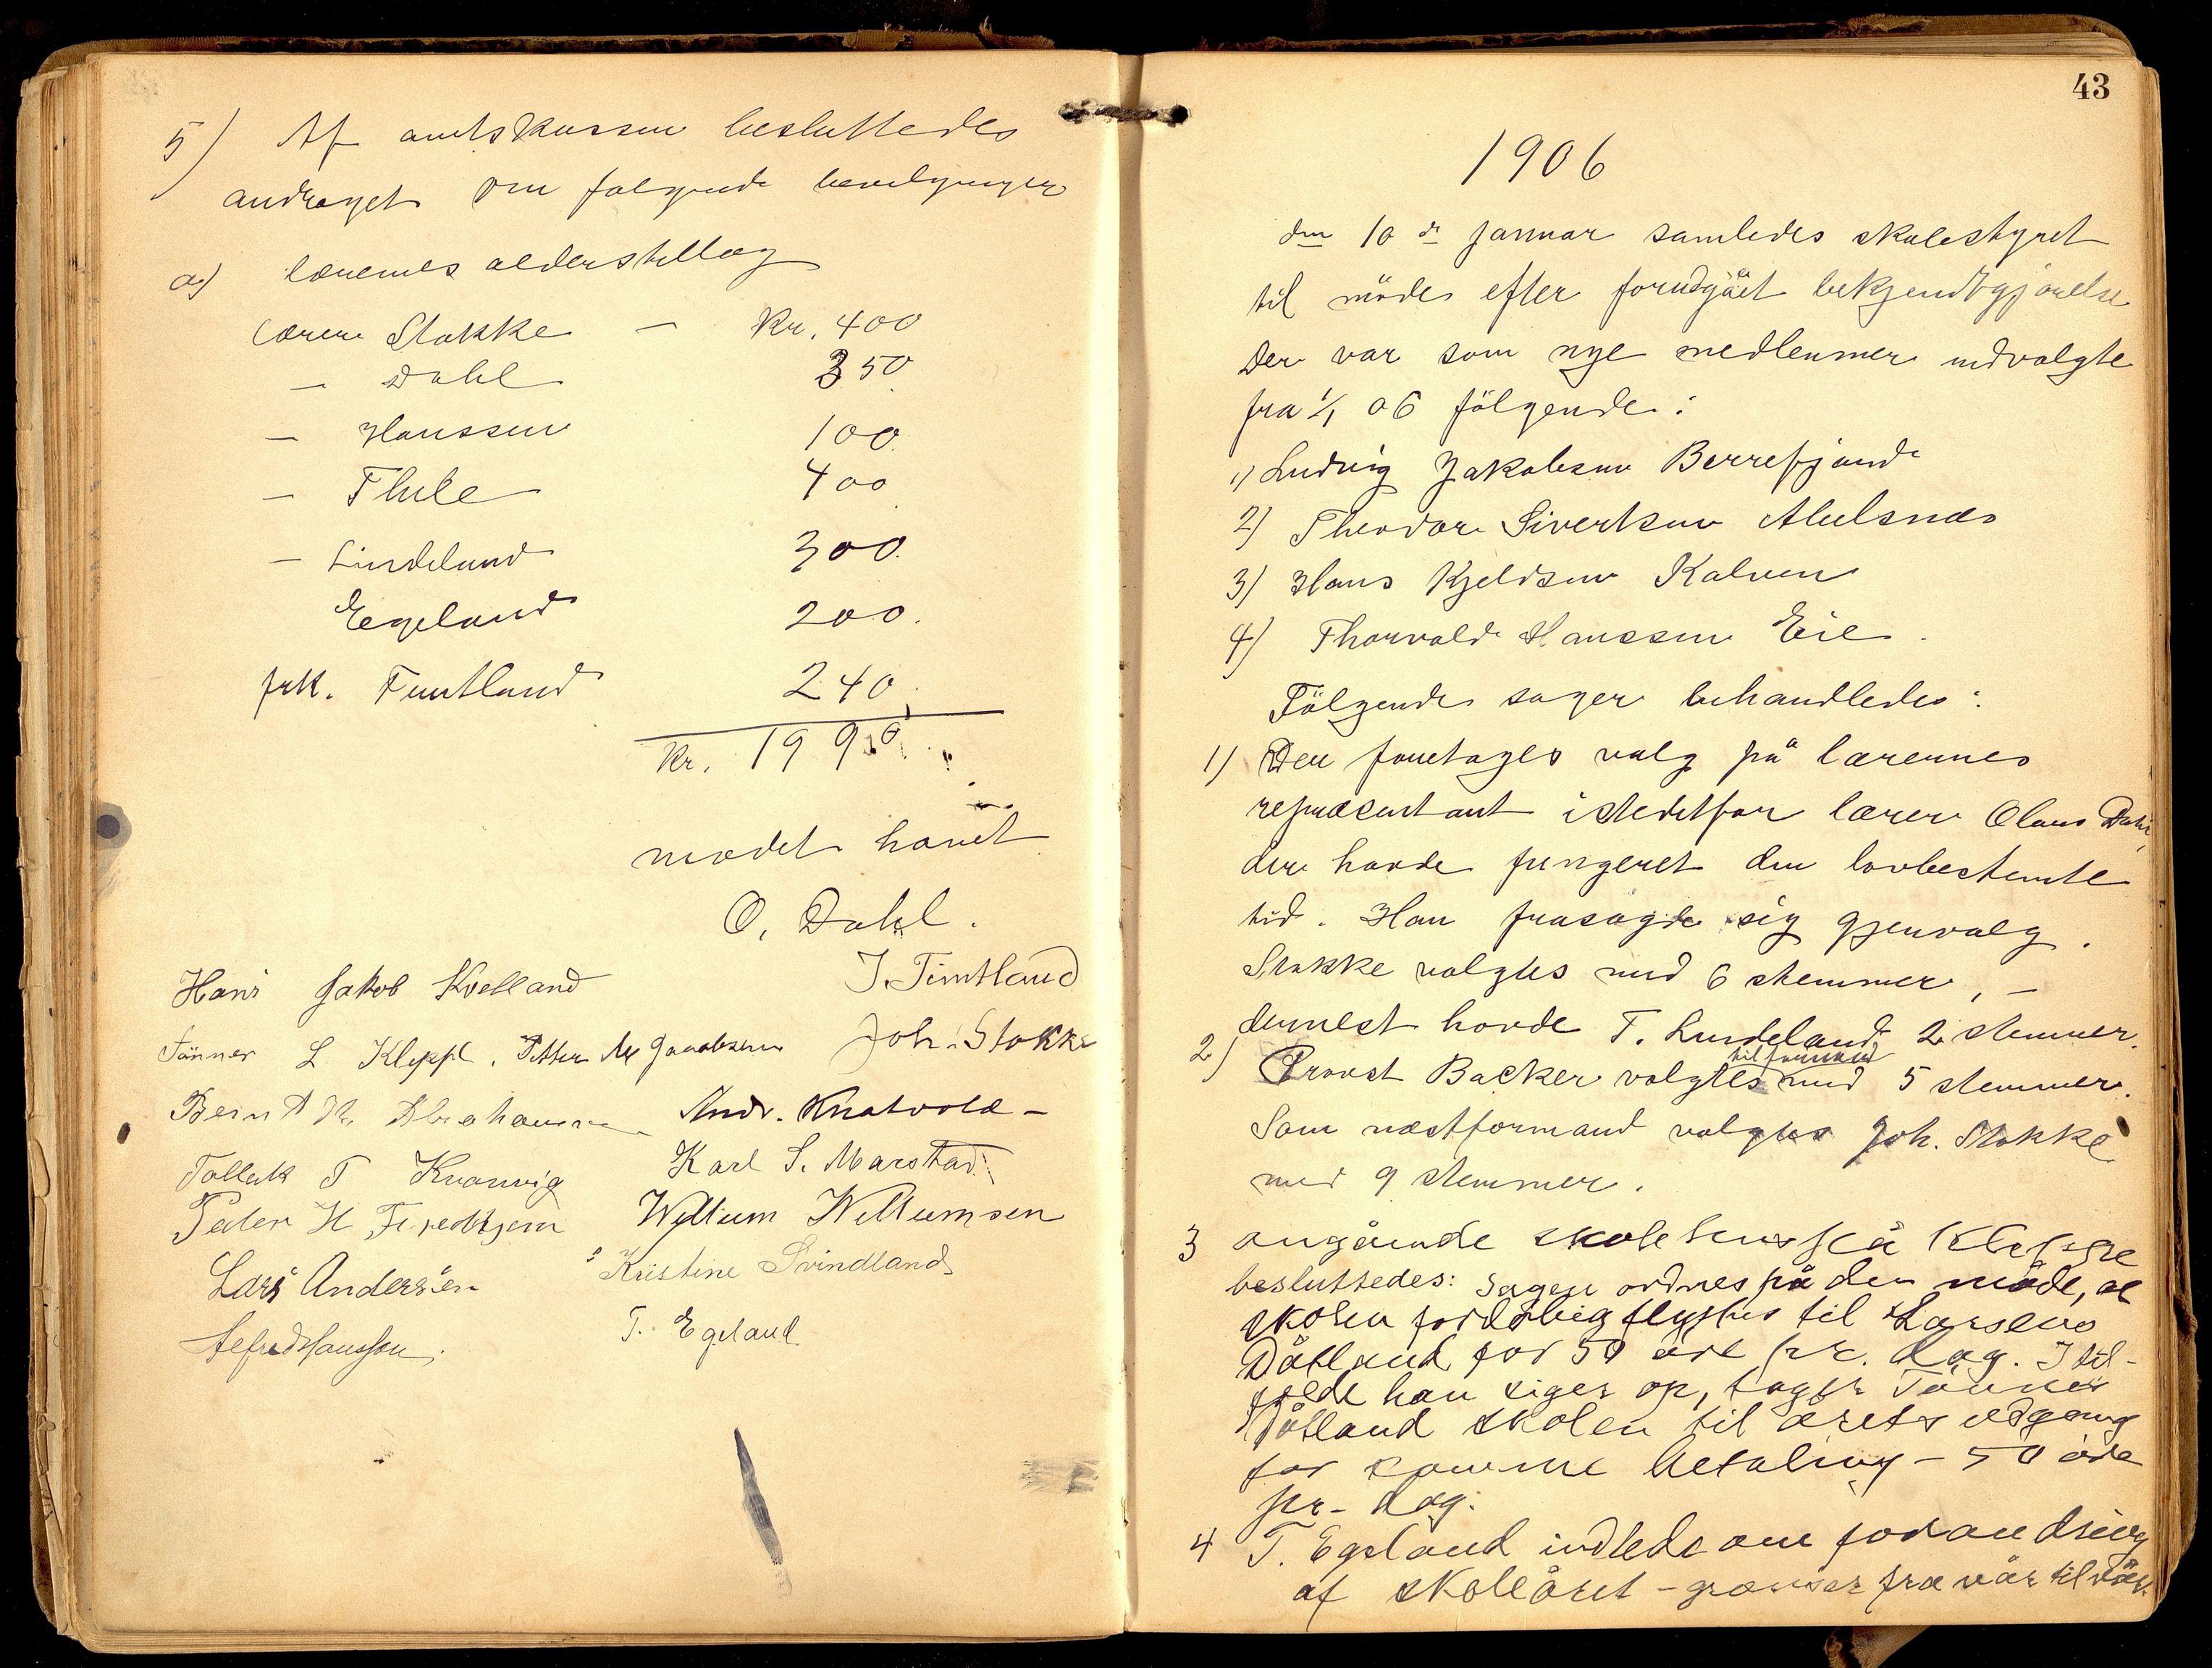 5) Af amtskassen besluttedes
andraget om følgende bevilgninger
a) lærernes alderstillæg
lærer Stokke — Kr. 400
— Dahl 350
— Hanssen 100
— Thele 400
— Lindeland 300.
Egeland 200.
frk. Fintland 240
Kr. 1990
mødet hævet
O. Dahl.
Hans Jakob Kvelland
T. Fintland
Tönnes L Klepp. Petter M Jacobsen
Joh. Stokke
Bernt K. Abrahamsen
Andr. Knatvold —
Tollak T Kvanvig
Karl S. Marstad
Peder H
Willum Willumsen
Lars Andersen
Kristine Svindland
Alfred Hanssen.
T. Egeland
43
1906
den 10de Januar samledes skolestyret
til møde efter forudgået bekjendtgjørelse
Der var som nye medlemmer indvalgte
fra 1/1 06 følgende:
1) Ludvig Jakobsen Berrefjord
2) Theodor Sivertsen Abelsnæs
3) Hans Kjeldsen Kalven
4) Thorvald Hanssen Eie.
Følgende sager behandledes:
1) Der foretages valg på lærernes
repræsentant istedetfor lærer Olaus Dahl,
der havde fungeret den lovbestemte
tid. Han frasagde sig gjenvalg.
Stokke valgtes med 6 stemmer, —
dernest havde T. Lindeland 2 stemmer.
2) Provst Backer valgtes til formand med 5 stemmer.
Som næstformand valgtes Joh. Stokke
med 9 stemmer.
3 angående skolehus på Kleppe
besluttedes: Sagen ordnes på den måde, at
skolen forløbig flyttes til Larsens
Dåtland for 50 øre pr. dag. I til-
fælde han siger op, tager Tönnes
Dåtland skolen til årets udgang
for samme betaling — 50 øre
pr. dag.
4 T. Egeland indledede om forandring
af skoleåret — grænser fra vår til vår.